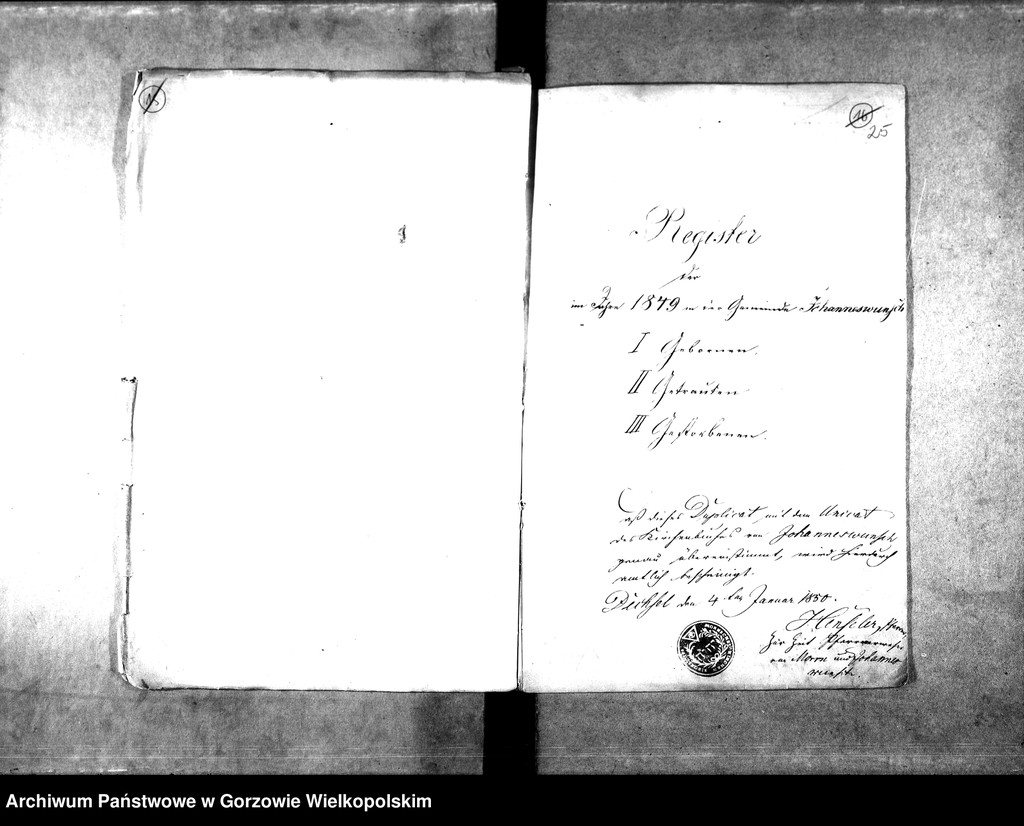 15
16
25
Register
der
im Jahre 1849 in der Gemeinde Johanneswunsch
I Gebornen.
II Getrauten
III Gestorbenen.
Daß dieses Duplicat mit dem Unicat
des Kirchenbuches von Johanneswunsch
genau übereinstimmt, wird hierdurch
amtlich bescheinigt.
Dechsel den 4ten Januar 1850.
Henseler, Pfarrer,
zur Zeit Pfarrverweser
von Morrn und Johannes
wunsch.
Archiwum Państwowe w Gorzowie Wielkopolskim